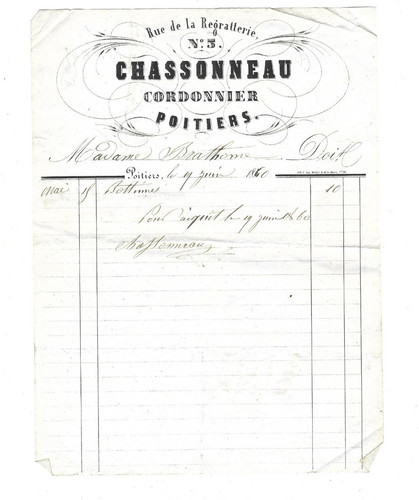 Rue de la Regratterie,
N.º 5.
CHASSONNEAU
CORDONNIER
POITIERS.
Madame Brathome Doit
Poitiers, le 9 juin 1860
mai 15 Bottines 10
Pour aquit le 9 juin 1860
Chassonneau